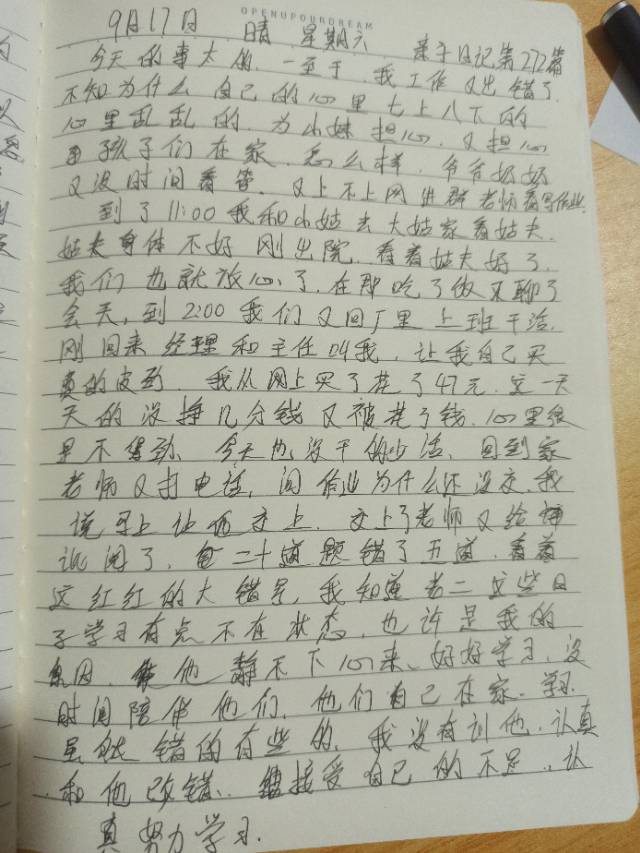 OPENUPOURDREAM
9月17日 晴 星期六 亲子日记第272篇
今天的事太的.一至于.我工作又出错了.
不知为什么自己的心里七上八下的
心里乱乱的.为小妹担心.又担心
孩子们在家.怎么样.爷爷奶奶
又没时间看管.又上不上网进群老师看写作业.
到了11:00我和小姑去大姑家看姑夫.
姑夫身体不好刚出院.看着姑夫好了.
我们也就放心了.在那吃了饭又聊了
会天,到2:00我们又回厂里上班干活.
刚回来经理和主任叫我.让我自己买
真的皮到.我从网上买了花了47元.这一天
天的没挣几分钱又被花了钱.心里很
是不得劲.今天也没干的少活.回到家
老师又打电话,问作业为什么还没交.我
说马上让他交上.交上了老师又给
批阅了.二十道题错了五道.看着
这红红的大错号,我知道老二这些日
子学习有点不在状态.也许是我的
原因.他静不下心来.好好学习,没
时间陪伴他们.他们自己在家.学习.
虽然错的有些的.我没有训他.认真
和他改错.接受自己的不足.认
真努力学习.